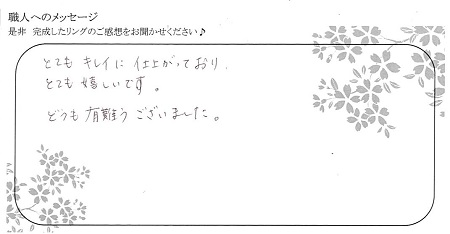 職人へのメッセージ
是非 完成したリングのご感想をお聞かせください♪
とても キレイに 仕上がっており、
とても 嬉しいです。
どうも 有難う ございました。